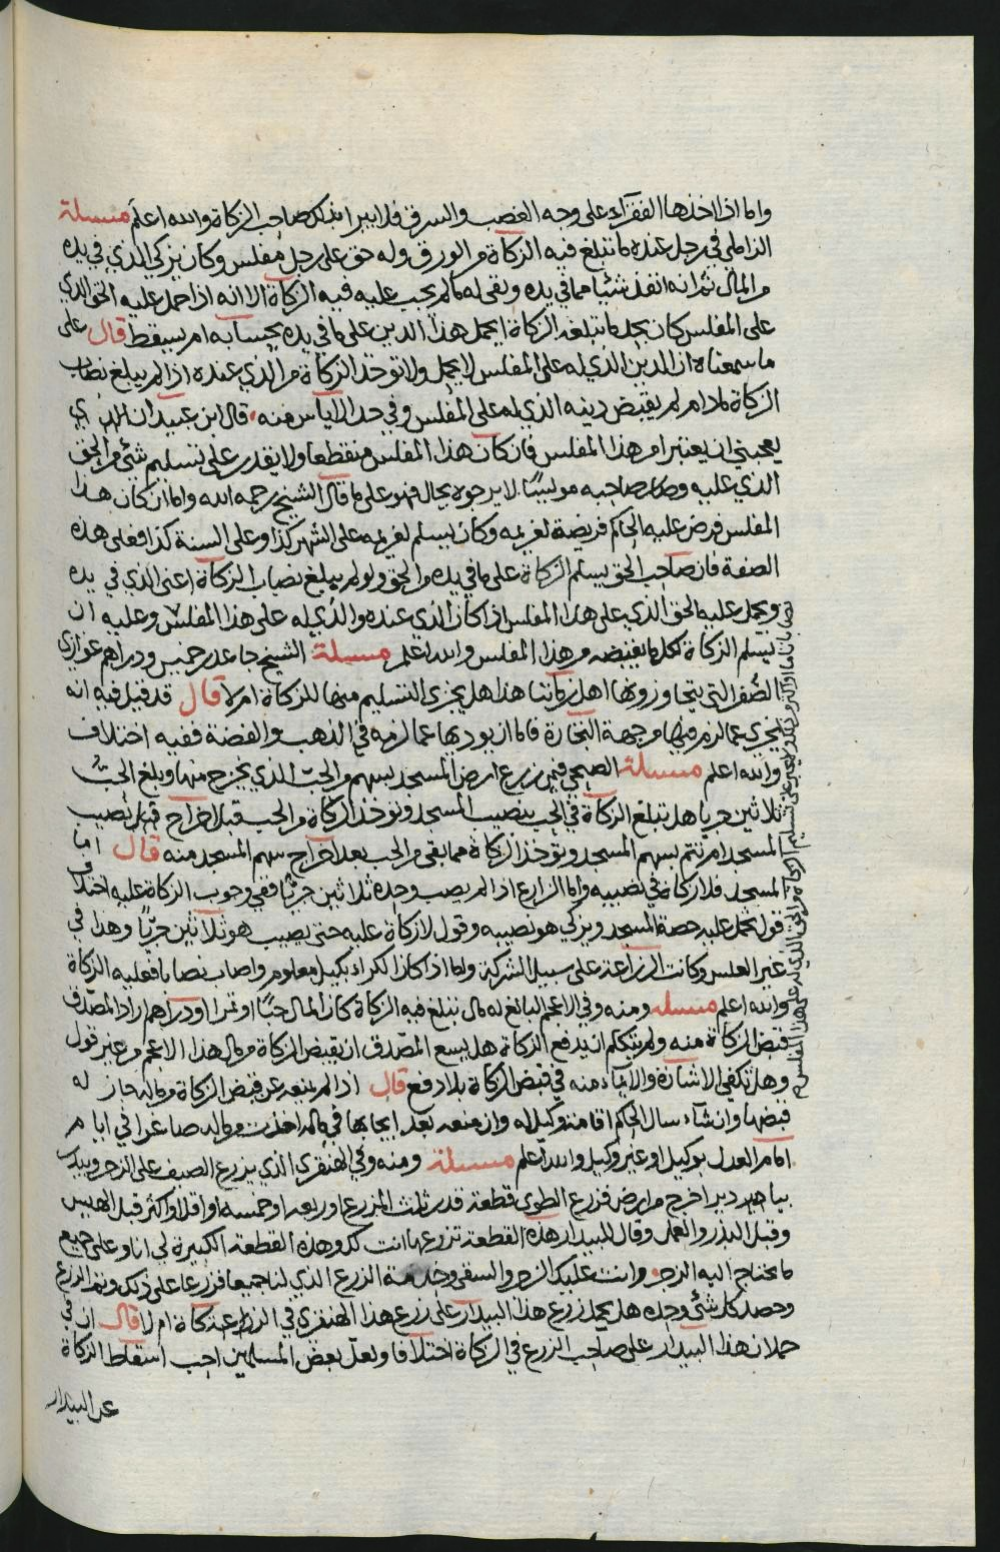 واما اذا اخذها الفقرآء على وجه الغصب والسرق فلا يبرا بذلك صاحب الزكاة والله اعلم مسئلة
الزاملي في رجل عنده ما تبلغ فيه الزكاة من الورق وله حق على رجل مفلس وكان يزكي الذي في يده
من المال ثم انه انفذ شيئا مما في يده وبقي له ما لم يجب عليه فيه الزكاة الا انه اذا حمل عليه الحق الذي
على المفلس كان بحد ما تبلغه الزكاة ايحمل هذا الدين على ما في يده بحسابه ام يسقط قال على
ما سمعناه ان الدين الذي له على المفلس لا يحمل ولا توخذ الزكاة من الذي عنده اذا لم يبلغ نصاب
الزكاة ما دام لم يقبض دينه الذي له على المفلس وفي حد الاياس منه قال ابن عبيدان الذي
يعجبني ان يعتبر امر هذا المفلس فان كان هذا المفلس منقطعا ولا يقدر على تسليم شئ من الحق
الذي عليه وصار صاحبه موئيسًا لا يرجوه بحال فهو على ما قال الشيخ رحمه الله واما ان كان هذا
المفلس فرض عليه الحاكم فريضة لغريمه وكان يسلم لغريمه على الشهر كذا وعلى السنة كذا فعلى هذه
الصفة فان صاحب الحق يسلم الزكاة على ما في يده من الحق ولو لم يبلغ نصاب الزكاة اعني الذي في يده
ويحمل عليه الحق الذي على هذا المفلس اذا كان الذي عنده والذي له على هذا المفلس وعليه ان
يسلم الزكاة لكل ما يقبضه من هذا المفلس والله اعلم مسئلة الشيخ جاعد بن خميس ودراهم غوازي
الصُفر التي يتجاوزونها اهل زماننا هذا هل يجزي التسليم منها للزكاة ام لا قال قد قيل فيه انه
يجزي عما لزم فيها من جهة التجارة فاما ان يوديها عما لزمه في الذهب والفضة ففيه اختلاف
والله اعلم مسئلة الصبحي فيمن زرع ارض المسجد بسهم من الحبّ الذي يخرج منها وبلغ الحبُّ
ثلاثين جريا هل تبلغ الزكاة في الحب بنصيب المسجد وتوخذ الزكاة من الحب قبل اخراج نصيب
المسجد ام تتم بسهم المسجد وتوخذ الزكاة مما بقي من الحب بعد اخراج سهم المسجد منه قال اما
المسجد فلا زكاة في نصيبه واما الزارع اذا لم يصب وحده ثلاثين جريًا ففي وجوب الزكاة عليه اختلاف
قول يحمل عليه حصة المسجد ويزكي هو نصيبه وقول لا زكاة عليه حتى يصيب هو ثلاثين جريًا وهذا في
غير العلس وكانت الزراعة على سبيل الشركة واما اذا كان الكراء بكيل معلوم واصاب نصابا فعليه الزكاة
والله اعلم مسئله ومنه وفي الاعجم البالغ له مال تبلغ فيه الزكاة كان المال حبًا او تمرا او دراهم اراد المصدّف
قبض الزكاة منه ولم يتكلم ان يدفع الزكاة هل يسع المصّدق ان يقبض الزكاة من مال هذا الاعجم من غير قول
وهل تكفي الاشارة والايمآء منه في قبض الزكاة بلا دفع قال اذا لم يمنعه عن قبض الزكاة من ماله جاز له
قبضها وان شآء سال الحاكم اقامة وكيل له وان منعه بعد ايجابها في ماله اخذت من ماله صاغرا في ايام
امام العدل بوكيل او غير وكيل والله اعلم مسئلة ومنه وفي الهنقري الذي يزرع الصيف على الزجر
اخرج من ارض فزرع الطوي قطعة قدر ثلث المزرع او ربعه او خمسه او اقل او اكثر قبل الهيس
وقبل البذر والعمل وقال للبيدار هذه القطعة تزرعها انت لك وهذه القطعة الكبيرة لي انا وعلي جميع
ما يحتاج اليه الزجر وانت عليك الزجر والسقي وخدمة الزرع الذي لنا جميعا فزرعا على ذلك وتم الزرع
وحصد كل شئ وحده هل يحمل زرع هذا البيدار على زرع هذا الهنقري في الزكاة ام لا قال ان في
حملان هذا البيدار على صاحب الزرع في الزكاة اختلافا ولعل بعض المسلمين احب اسقاط الزكاة
عن البيدار